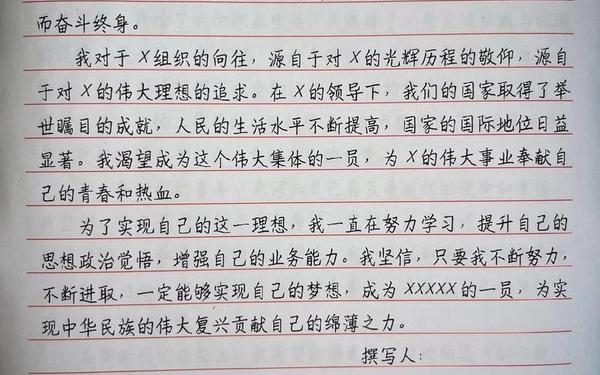 而奋斗终身。
我对于X组织的向往，源自于对X的光辉历程的敬仰，源自
于对X的伟大理想的追求。在X的领导下，我们的国家取得了举
世瞩目的成就，人民的生活水平不断提高，国家的国际地位日益
显著。我渴望成为这个伟大集体的一员，为X的伟大事业奉献自
己的青春和热血。
为了实现自己的这一理想，我一直在努力学习，提升自己的
思想政治觉悟，增强自己的业务能力。我坚信，只要我不断努力，
不断进取，一定能够实现自己的梦想，成为XXXXX的一员，为实
现中华民族的伟大复兴贡献自己的绵薄之力。
撰写人：